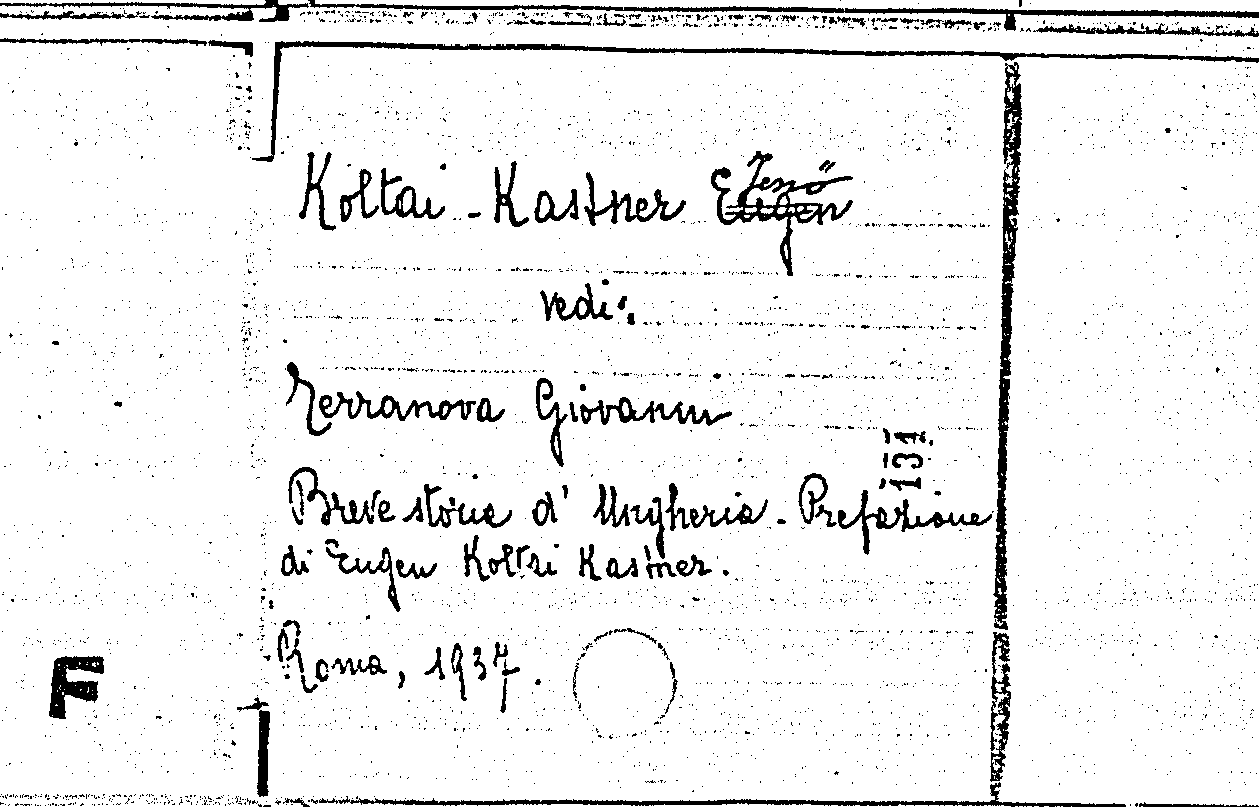 Koltai-Kastner Eugen Jenő
vedi:
Terranova Giovanni
131
Breve storia d'Ungheria. Prefazione
di Eugen Koltai Kastner.
Roma, 1937.
F